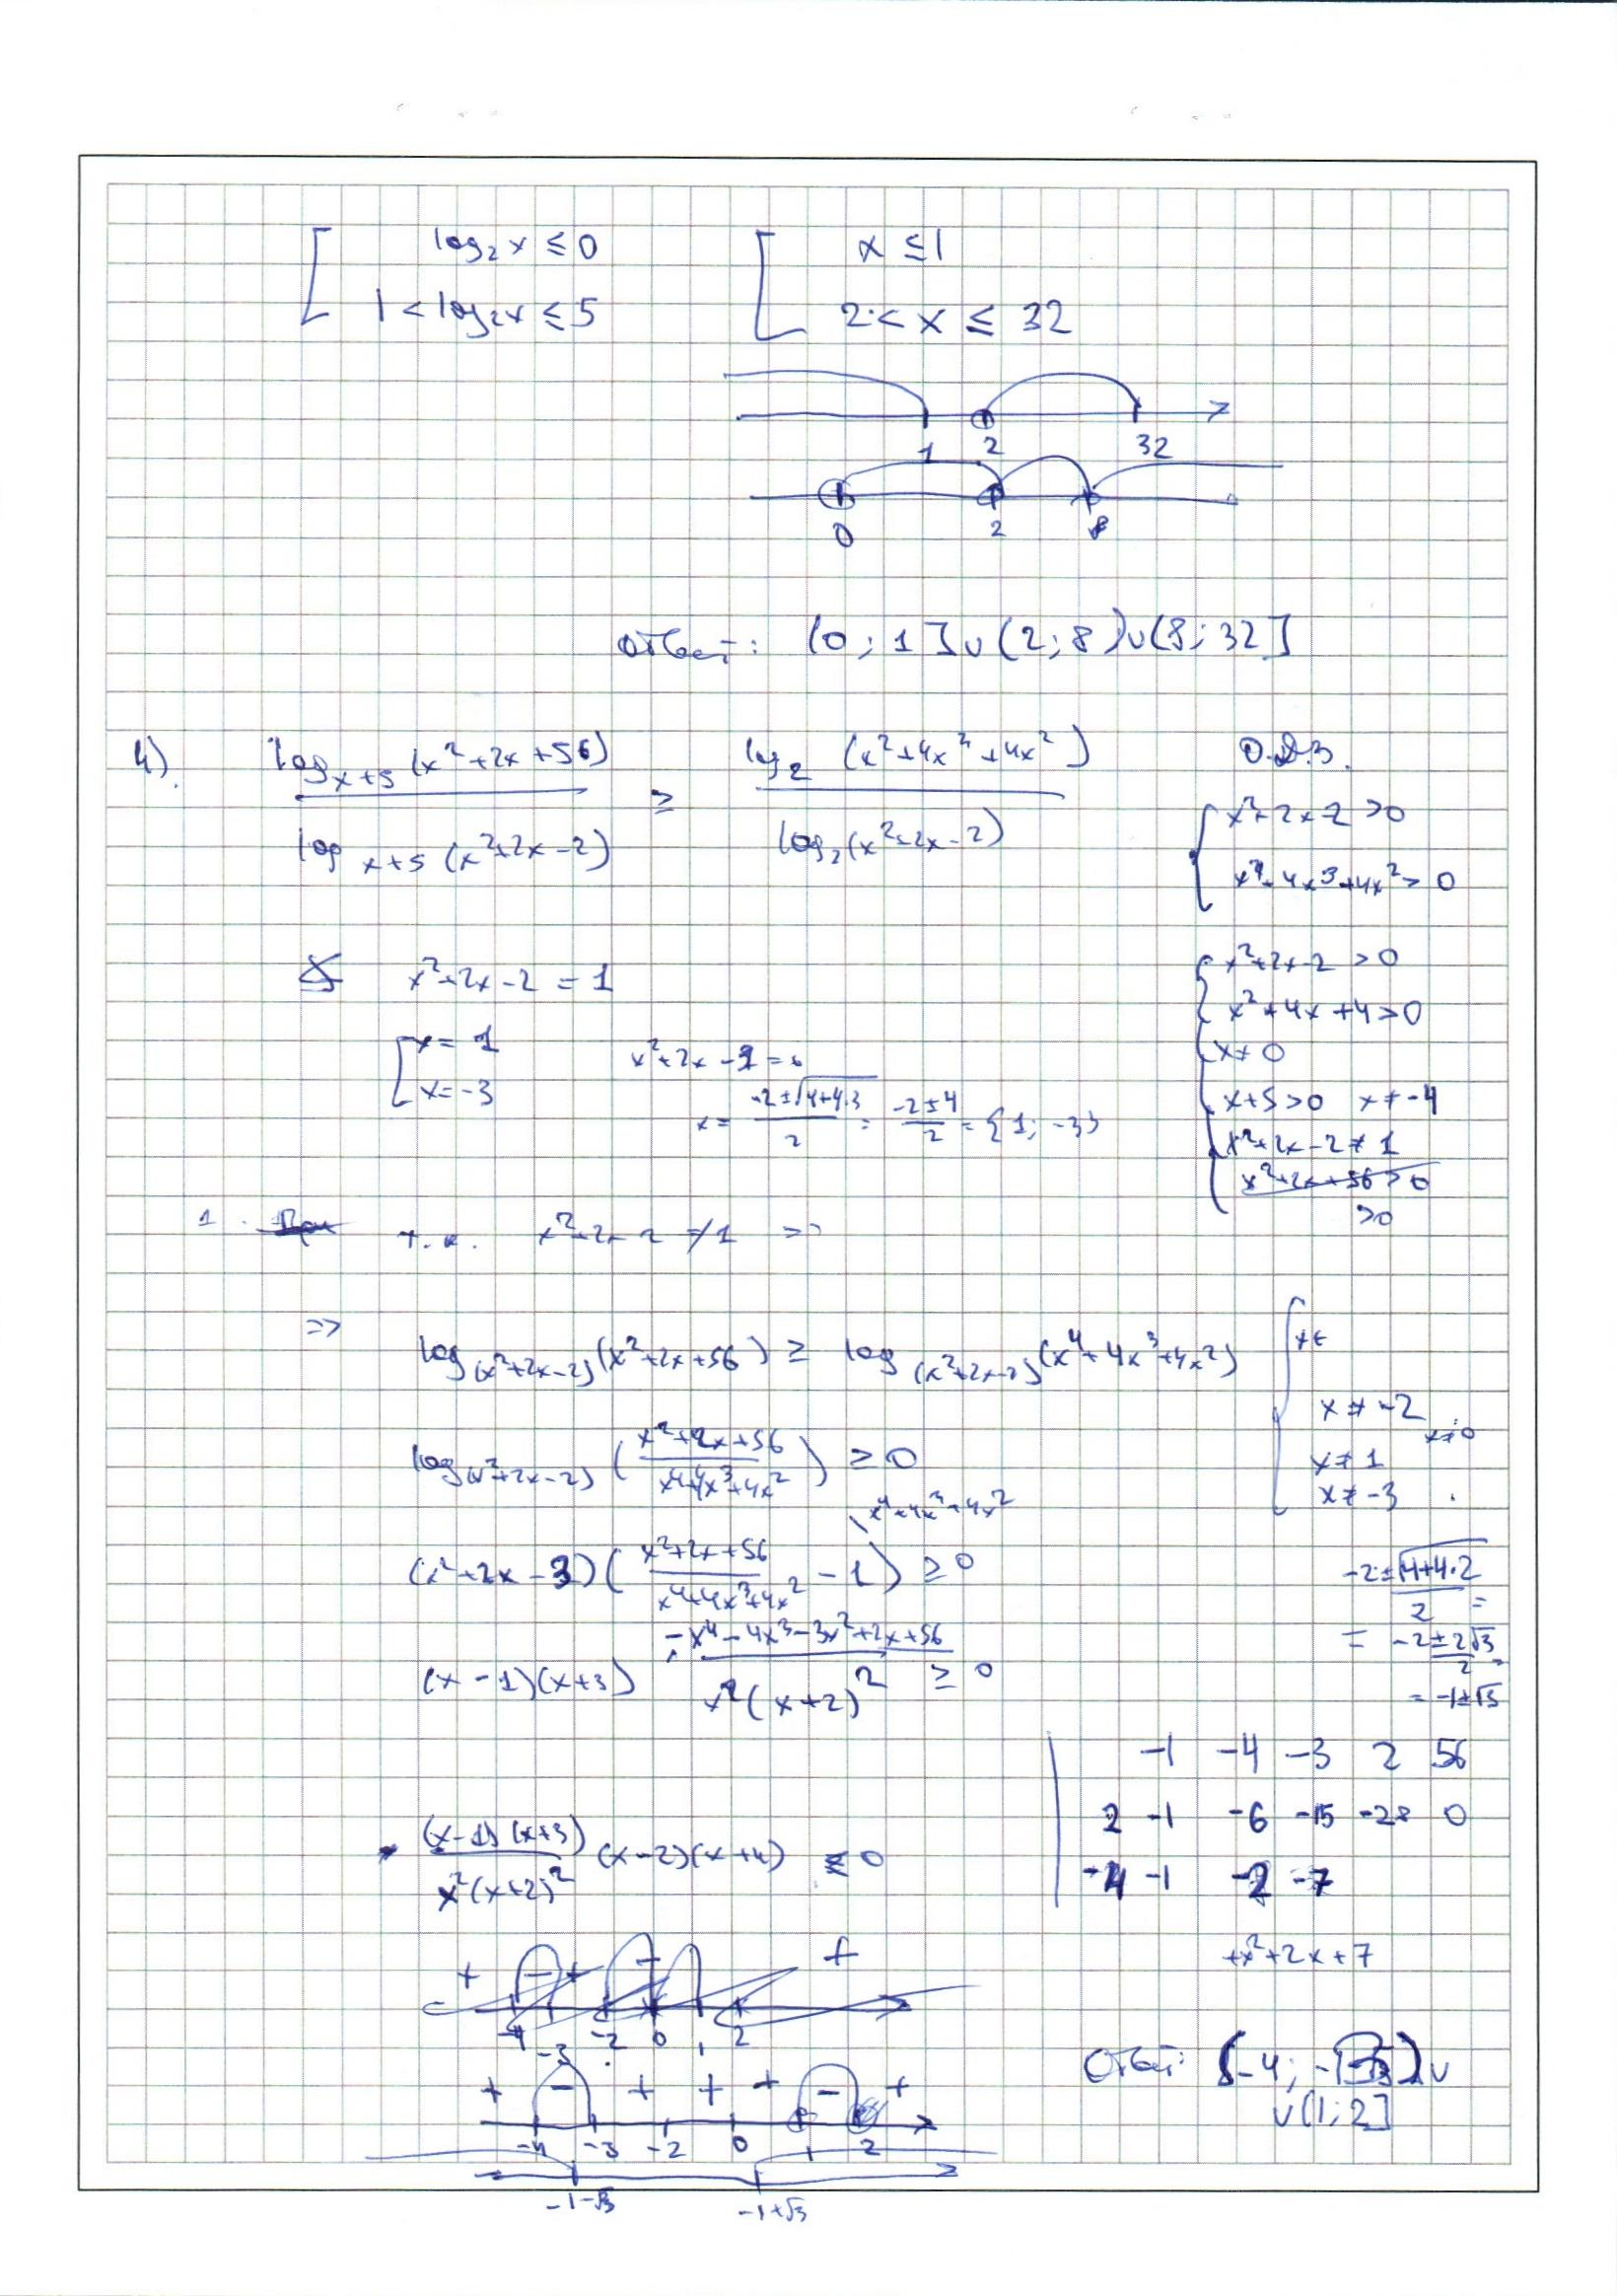 log₂ x ≤ 0 x ≤ 1
1 < log₂ x ≤ 5 2 < x ≤ 32
1 2 32
0 2 8
Ответ: (0; 1] ∪ (2; 8) ∪ (8; 32]
4) log_{x+5} (x² + 2x + 56) / log_{x+5} (x² + 2x - 2) ≥ log₂ (x² + 4x³ + 4x²) / log₂ (x² + 2x - 2) О.Д.З.
x² + 2x - 2 > 0
x⁴ + 4x³ + 4x² > 0
x² + 2x - 2 = 1
x = 1
x = -3
x² + 2x - 3 = 0
x = (-2 ± √(4+4·3)) / 2 = (-2 ± 4) / 2 = {1; -3}
x² + 2x - 2 > 0
x² + 4x + 4 > 0
x ≠ 0
x + 5 > 0 x ≠ -4
x² + 2x - 2 ≠ 1
x² + 2x + 56 > 0
> 0
1. При т.к. x² + 2x - 2 ≠ 1 =>
=> log_{(x²+2x-2)} (x² + 2x + 56) ≥ log_{(x²+2x-2)} (x⁴ + 4x³ + 4x²)
x ∈
x ≠ -2
x ≠ 0
x ≠ 1
x ≠ -3
log_{(x²+2x-2)} ((x² + 2x + 56) / (x⁴ + 4x³ + 4x²)) ≥ 0
x⁴ + 4x³ + 4x²
(x² + 2x - 3) ((x² + 2x + 56) / (x⁴ + 4x³ + 4x²) - 1) ≥ 0
(x - 1)(x + 3) · (-x⁴ - 4x³ - 3x² + 2x + 56) / (x²(x + 2)²) ≥ 0
(-2 ± √(4+4·2)) / 2 =
= (-2 ± 2√3) / 2 =
= -1 ± √3
-1 -4 -3 2 56
2 -1 -6 -15 -28 0
-4 -1 -2 -7
+x² + 2x + 7
(x-1)(x+3) / (x²(x+2)²) (x-2)(x+4) ≤ 0
+ - + - +
-4 -3 -2 0 1 2
+ - + + + - +
-4 -3 -2 0 1 2
-1-√3 -1+√3
Ответ: (-4; -3) ∪
∪ (1; 2]